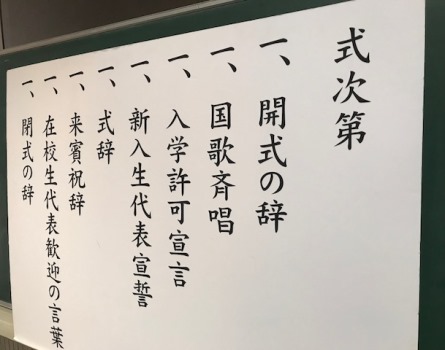 式次第
一、開式の辞
一、国歌斉唱
一、入学許可宣言
一、新入生代表宣誓
一、式辞
一、来賓祝辞
一、在校生代表歓迎の言葉
一、閉式の辞